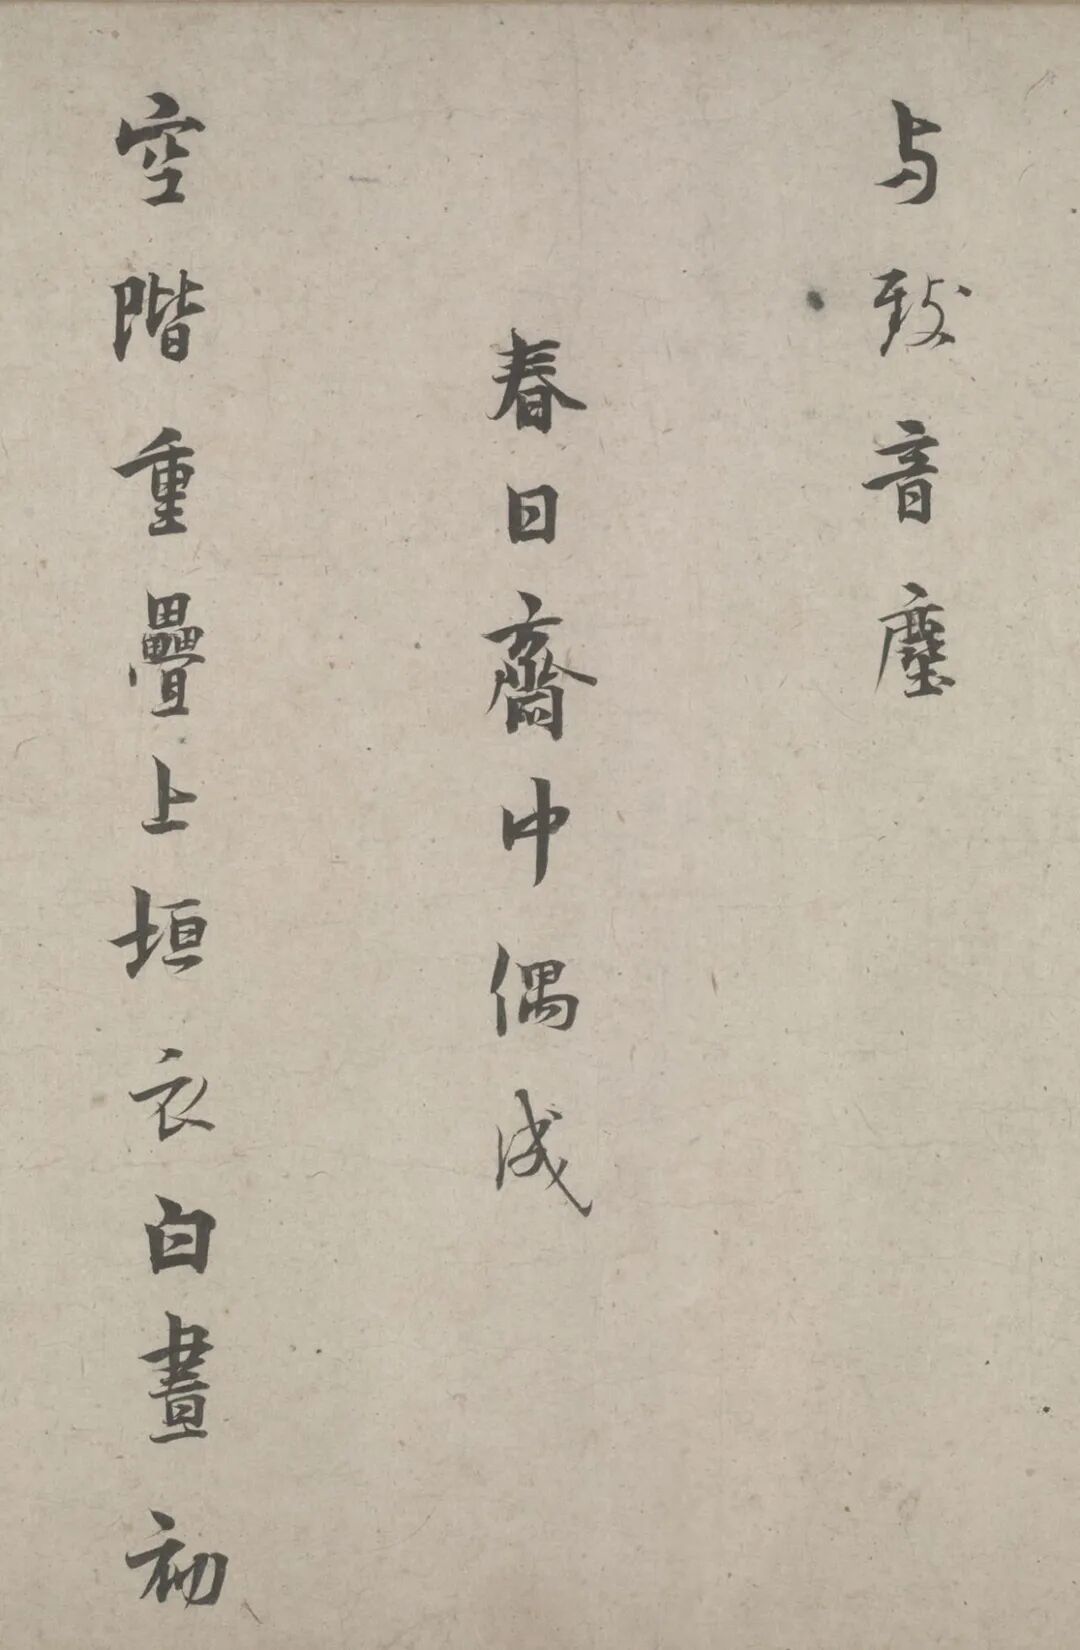 与致音塵
春日齋中偶成
空階重疊上垣衣白晝初